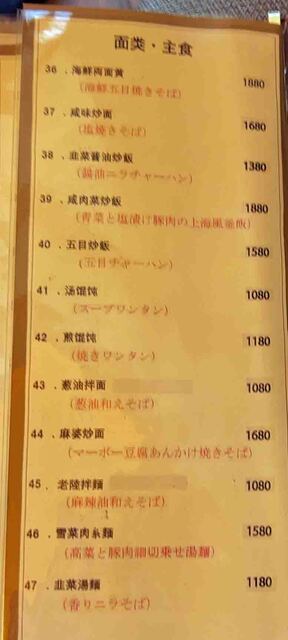 面类・主食
36．海鮮両面黄 1880
（海鮮五目焼きそば）
37．咸味炒面 1680
（塩焼きそば）
38．韭菜醤油炒飯 1380
（醤油ニラチャーハン）
39．咸肉菜炒飯 1880
（青菜と塩漬け豚肉の上海風釜飯）
40．五目炒飯 1580
（五目チャーハン）
41．汤馄饨 1080
（スープワンタン）
42．煎馄饨 1180
（焼きワンタン）
43．葱油拌面 1080
（葱油和えそば）
44．麻婆炒面 1680
（マーボー豆腐あんかけ焼きそば）
45．老陸拌麺 1080
（麻辣油和えそば）
46．雪菜肉糸麺 1580
（高菜と豚肉細切乗せ湯麺）
47．韭菜湯麺 1180
（香りニラそば）